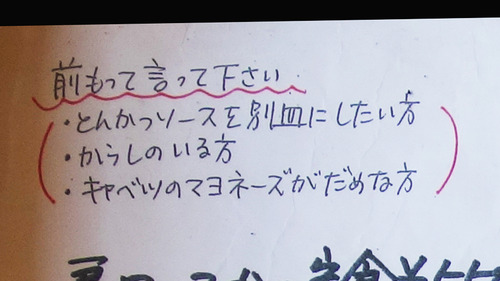 前もって言って下さい
・とんかつソースを別皿にしたい方
・からしのいる方
・キャベツのマヨネーズがだめな方